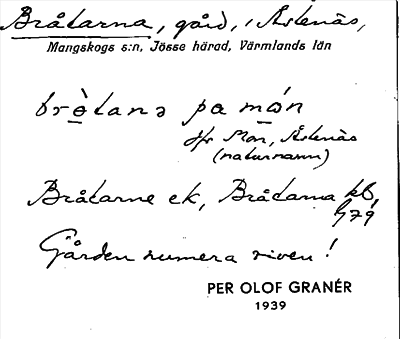 Bråtarna, gård, i Åstenäs,
Mangskogs s:n, Jösse härad, Värmlands län
brè̱tana pa mó̱n
jfr Mon, Åstenäs
(naturnamn)
Bråtarne ek, Bråtarna kb,
G79
Gården numera riven!
PER OLOF GRANÉR
1939